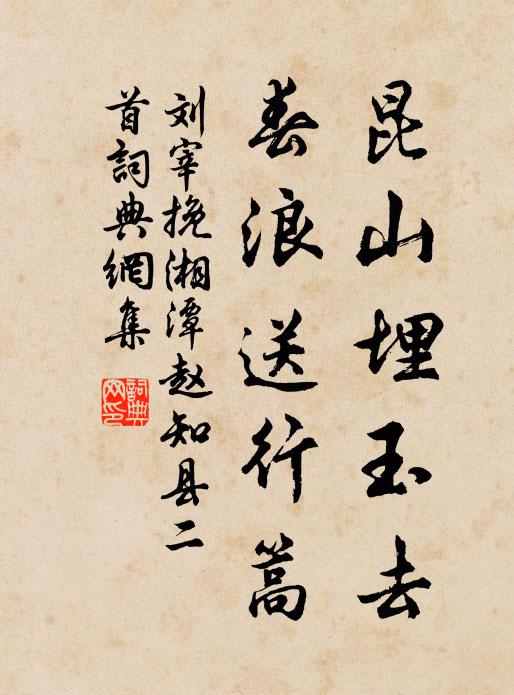 昆山埋玉去
春浪送行篙
刘宰挽湘潭赵知县二
首詞典網集
詞典網印